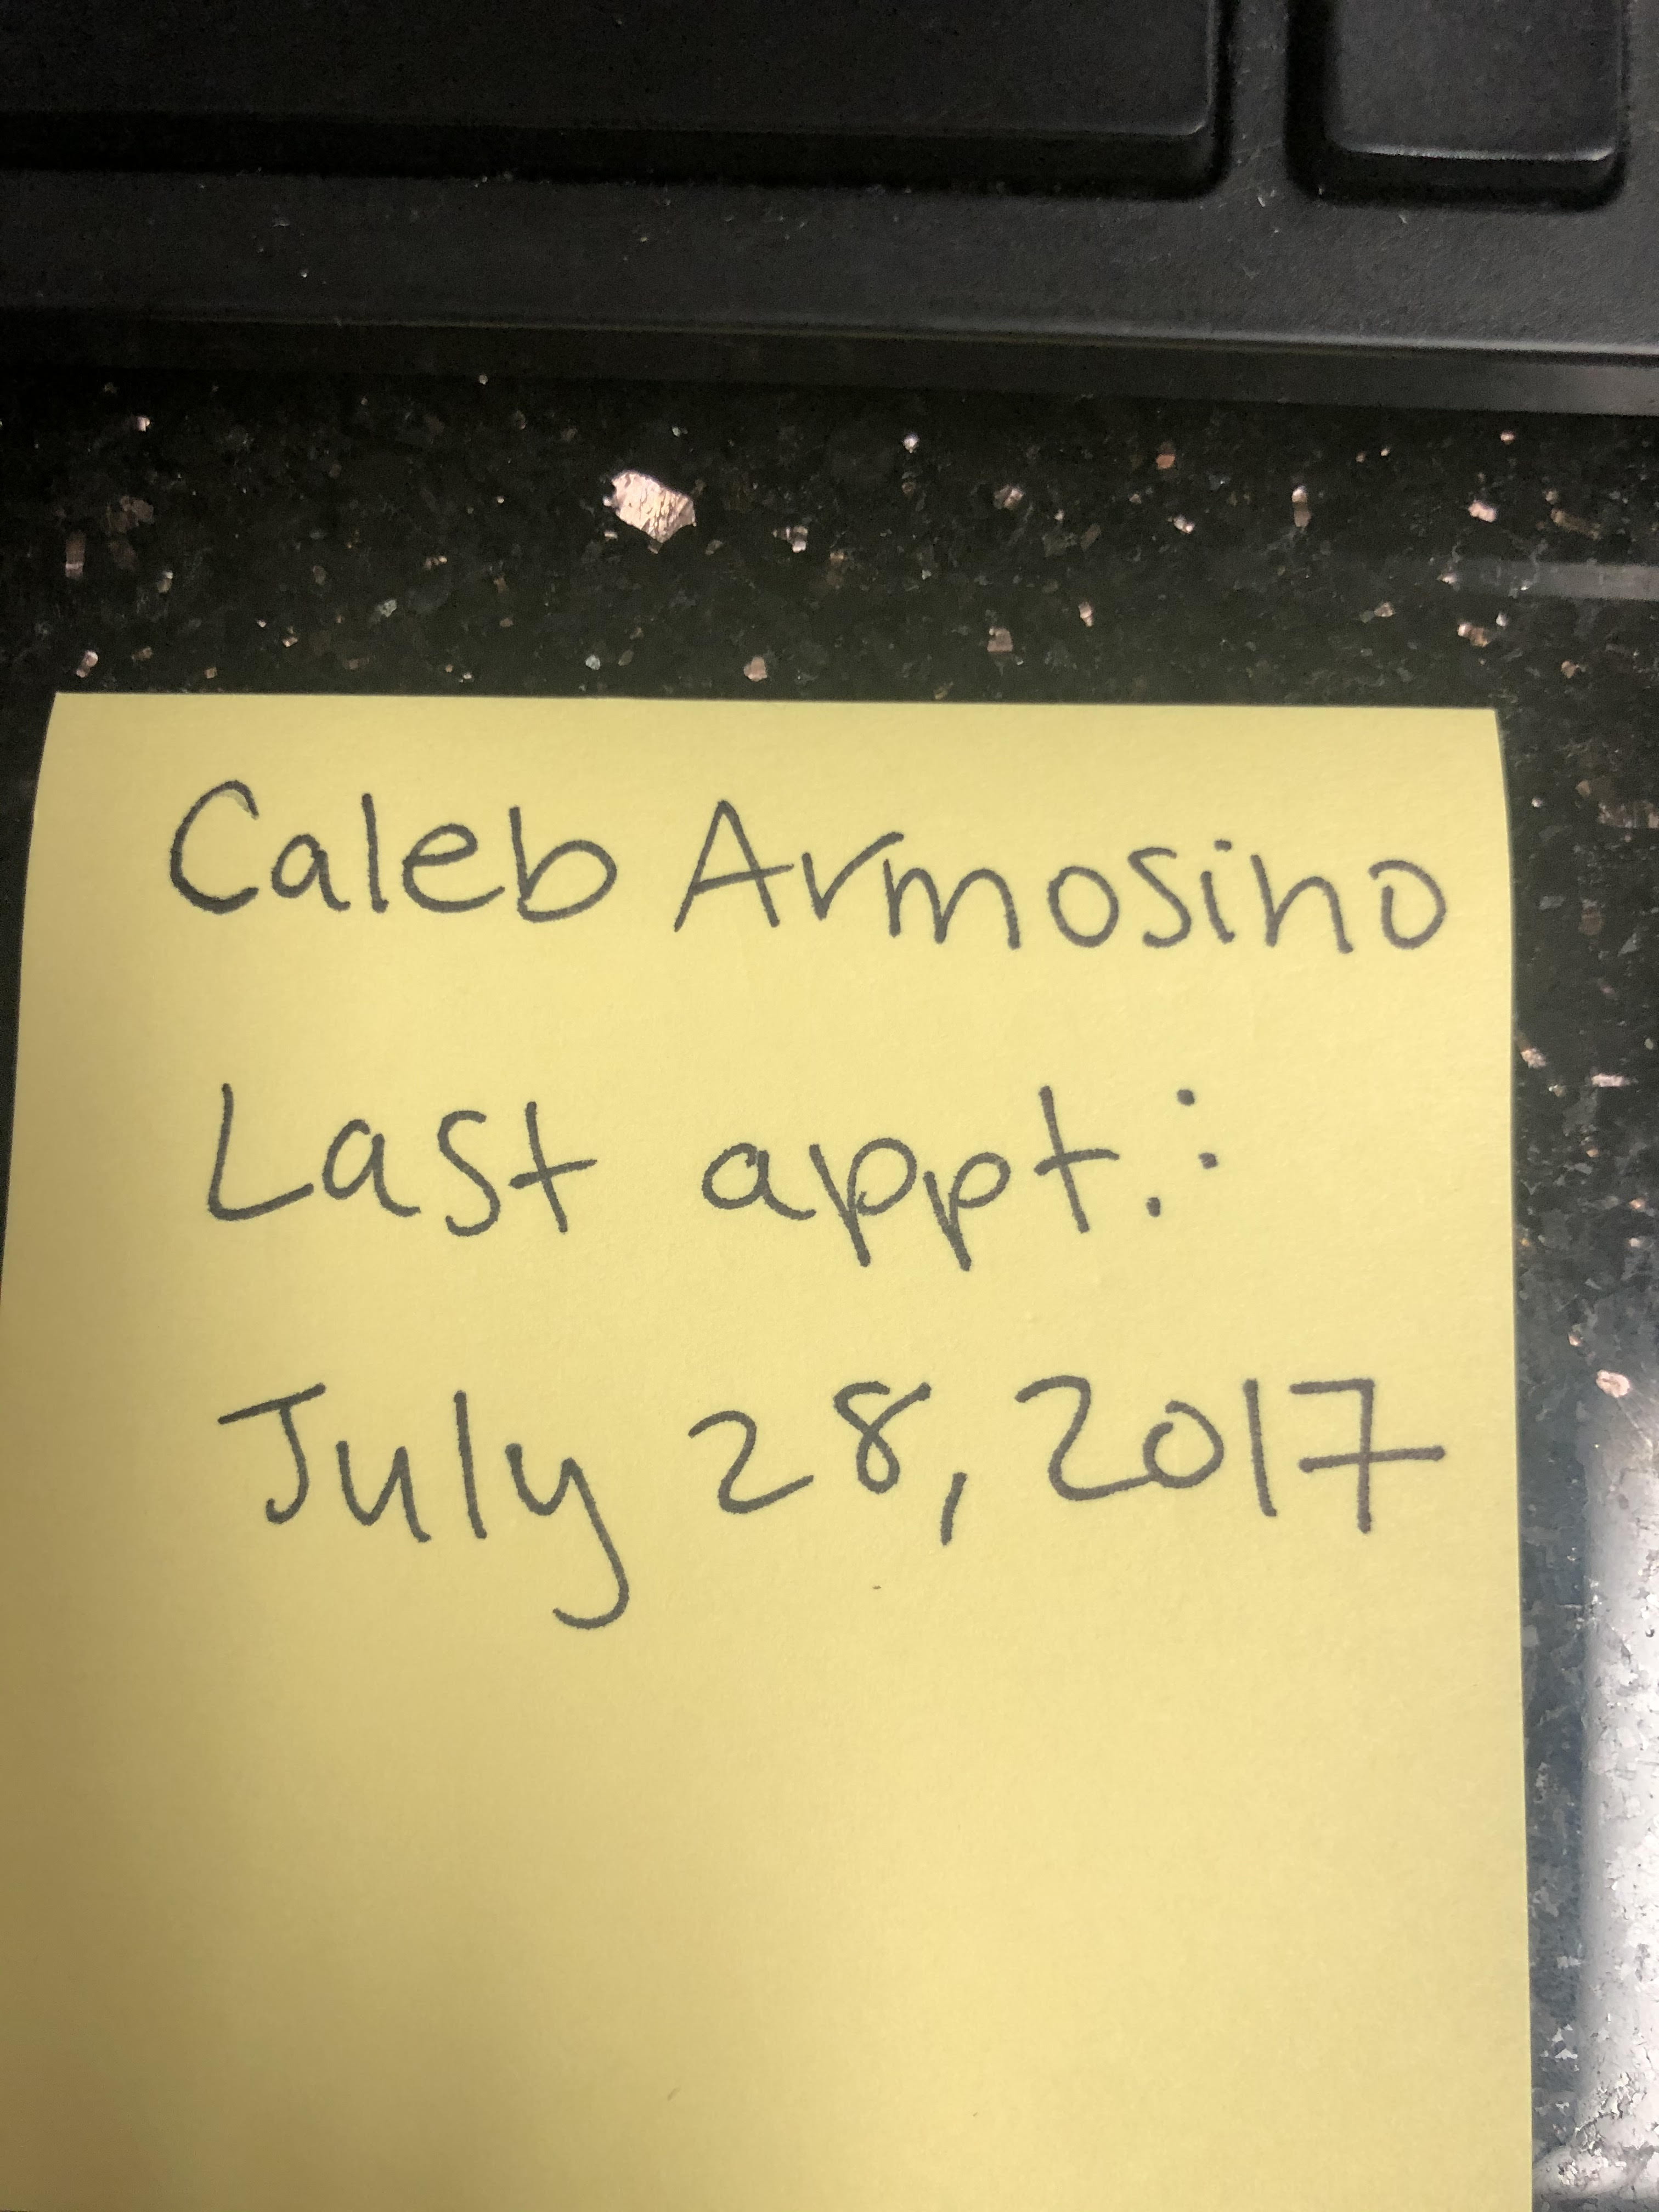 Caleb Armosino
Last appt.:
July 28, 2017